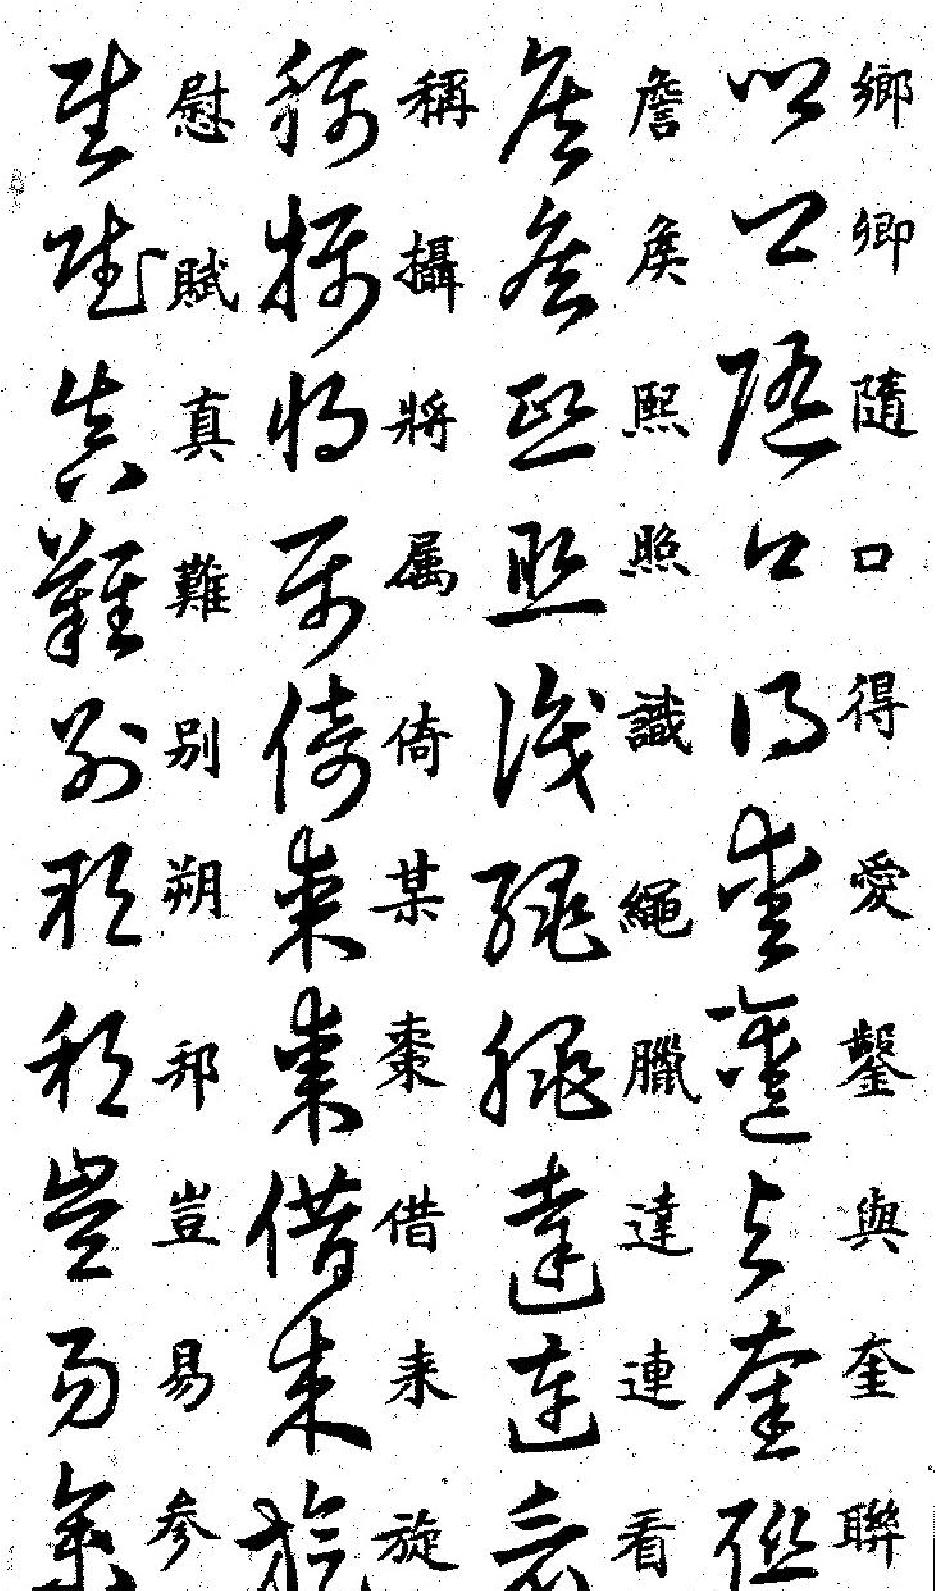 鄉卿隨口得愛鑿與奎聯
詹侯熙照識繩臘達連看
稱攝將属倚某棗借来旋
慰賦真難别朔邦豈易参